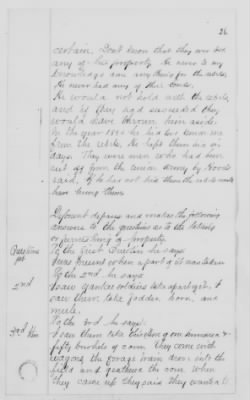 26
certain. Dont know that they ever got
any of his property. He never to my
knowledge done any thing for the rebels.
He never had any of their bonds.
He would not hold with the rebels,
and if they had suspected they
would have thrown him aside.
In the year 1864 he hid two Union men
from the rebels. He kept them six
days. They were men who had been
cut off from the union army by
raid, if he had not hid them the rebels would
have hung them.
Deponent deposes and makes the following
answer to the questions as to the taking
or furnishing of property.
Question
1st
To the first Question he says:
I was present when a part of it was taken
2nd
To the 2nd he says:
I saw Yankee soldiers take a part of it. I
saw them take fodder, corn, and
mule.
3rd Item
To the 3rd he says:
I saw them take
fifty bushels of corn. They come with
wagons, the forage train drove into the
field and gathered the corn. When
they came up they said they wanted it